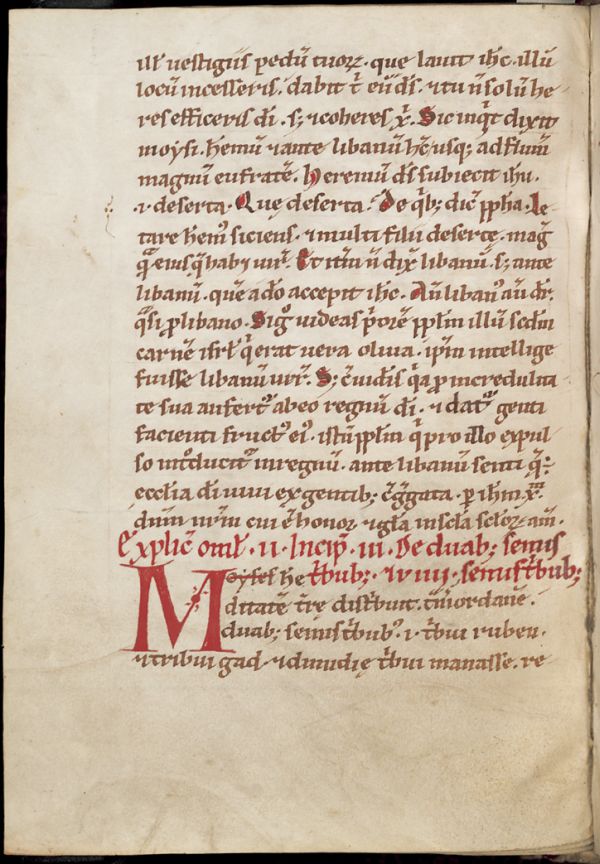 ill' vestigiis pedū tuoꝝ. que lauit ih̄c. illū
locū incesseris. dabit t̄ eū d̄s. ⁊ tu n̄ solū he
res efficeris dī. s; ⁊ coheres xp̄i. Sic inq͛t dixit
moysi. hemū ⁊ ante libanū h̄ usq; ad flum̄
magnū eufratē. heremū d̄s subiecit ih̄u.
⁊ deserta. Que deserta. De q͛b; dic̄ pp̄ha. Le
tare hem͛ siciens. ⁊ multi filii deserte. mag̅
q͛ eius q̄ hab; uir͛. Et itm̄ n̄ dix̄ libanū. s; ante
libanū. quē a do accepit ih̄c.
q͛si p libano. Sig͛ uideas p͛orē pp̄lm illū sc̄dm
carnē isrl' q͛ erat uera oliua. ip̄m intellige
fuisse libanū. S; uidis q͛a p incredulita
te sua aufert͛ ab eo regnū dī. ⁊ dat͛ genti
facienti fruct͛ ei͛. istū pp̄lm q͛ pro illo expul
so int͛ducit͛ in regnū. ante libanū
ecclia dī uiui ex gentib; c̄g͛gata. p ih̄m xp̄m
dn̄m nr̄m cui ē honor. ⁊ gl̄a in sc̄la sc̄loꝝ am̄.
Explic̄ omł. II. Incip̄. III. De duab; semis
Moyses he t͛bub;. ⁊ VIIII. semis t͛bub;
ditatē t͛re dist͛buit. t͛ns iordanē.
duab; semis t͛bub͛. i. t͛bui ruben.
⁊ tribui gad. ⁊ dimidię t͛bui manasse. re